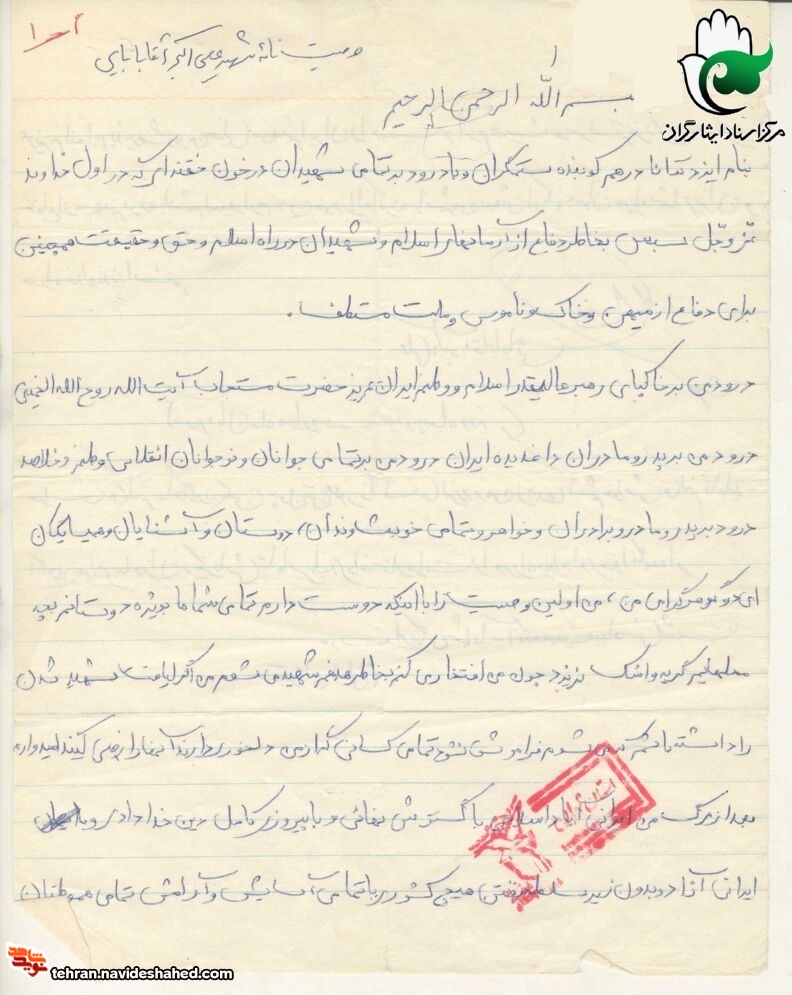 وصیت نامه شهید علی اکبر آقابابایی
۱
بسم الله الرحمن الرحیم
مرکز اسناد ایثارگران
بنام ایزد توانا درهم کوبنده ستمگران و با درود بر تمامی شهیدان در خون خفته‌ای که در اول خداوند
عزوجل سپس بخاطر دفاع از آرمانهای اسلام و شهیدان در راه اسلام و حق و حقیقت همچنین
برای دفاع از میهن و خاک و ناموس و ملت
درود من بر خاکپای رهبر عالیقدر اسلام و وطنم ایران عزیز حضرت مستجاب آیت الله روح الله الخمینی
درود من بر پدر و مادران داغدیده ایران درود من بر تمامی جوانان و نوجوانان انقلابی وطنم و خلاصه
درود بر پدر و مادر و برادران و خواهر و تمامی خویشاوندان، دوستان و آشنایان و همسایگان
من، من اولین وصیت را با اینکه دوست دارم تمامی شما ها بویژه دوستانم بچه
محلهایم گریه و اشک نریزند چون من افتخار می کنم بخاطر هدفم شهید می شوم من اگر لیاقت شهید شدن
را داشته باشم می شوم فراموش نشود تمامی کسانی که از من دلخوری دارند آنها را راضی کنید امیدوارم
بعد از مرگ من ایرانی آباد اسلامی با گسترش نهائی و با پیروزی کامل دین خدادادی و با
ایرانی آزاد و بدون زیر سلطه رفتن هیچ کشوری با تمامی آسایش و آرامش تمامی هموطنان
نوید شاهد
tehran.navideshahed.com